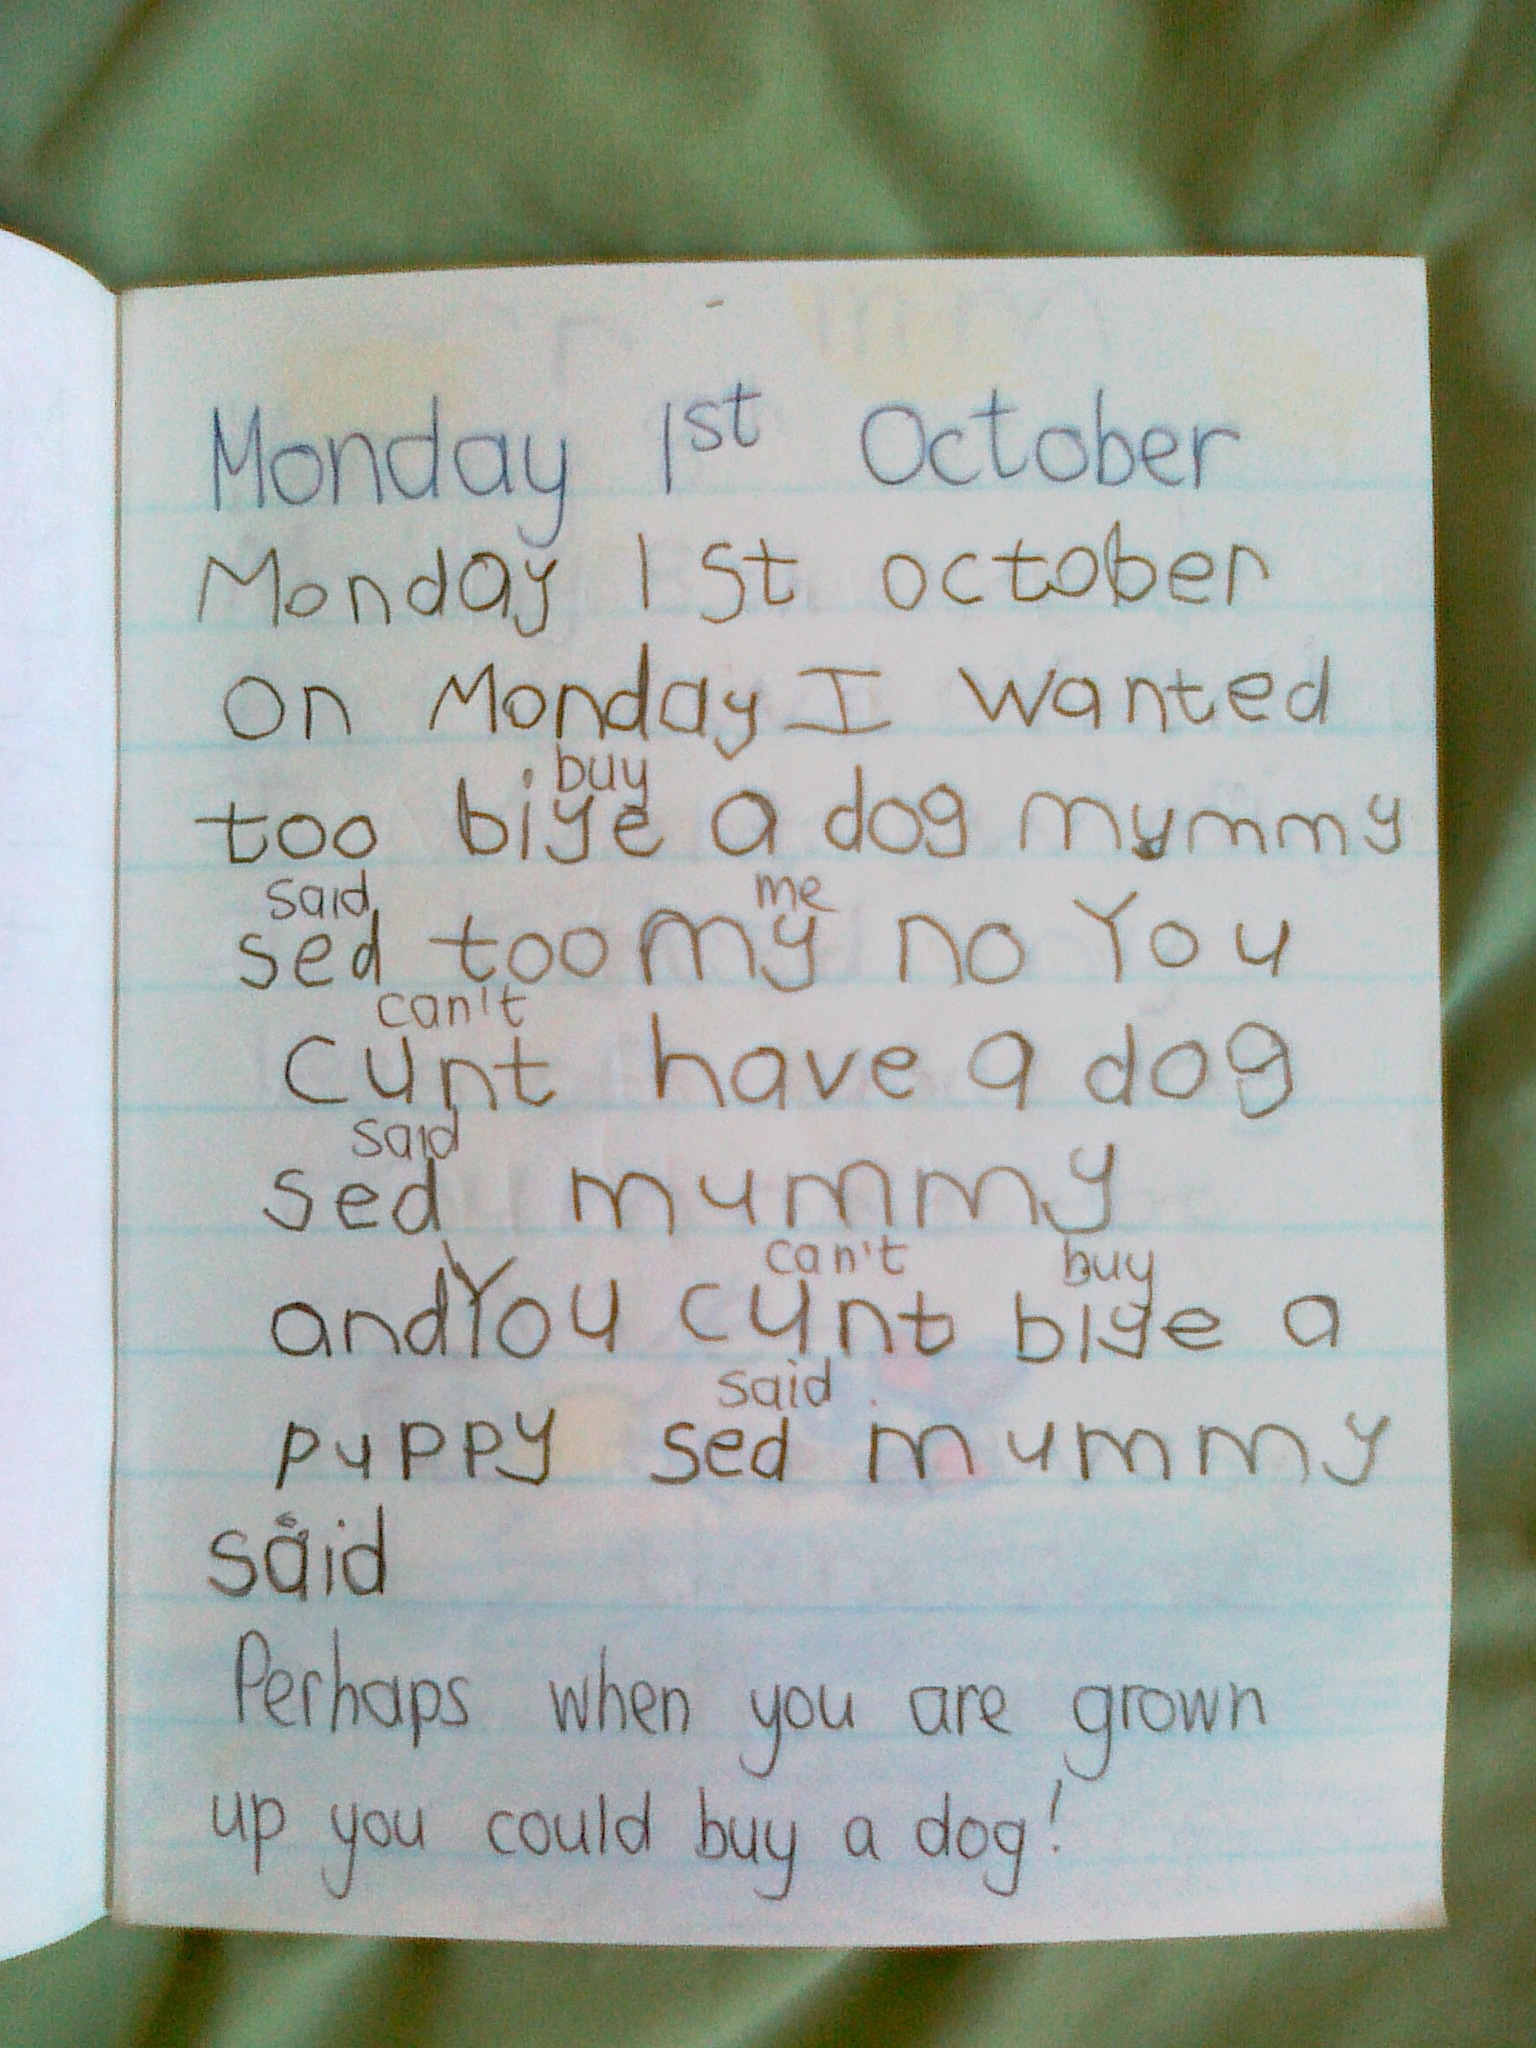 Monday 1st October
Monday 1st october
on Monday I wanted
buy
too biye a dog mymmy
said me
sed too my no You
can't
cunt have a dog
said
sed mummy
can't buy
and You cunt biye a
said
puppy sed mummy
said
Perhaps when you are grown
up you could buy a dog!